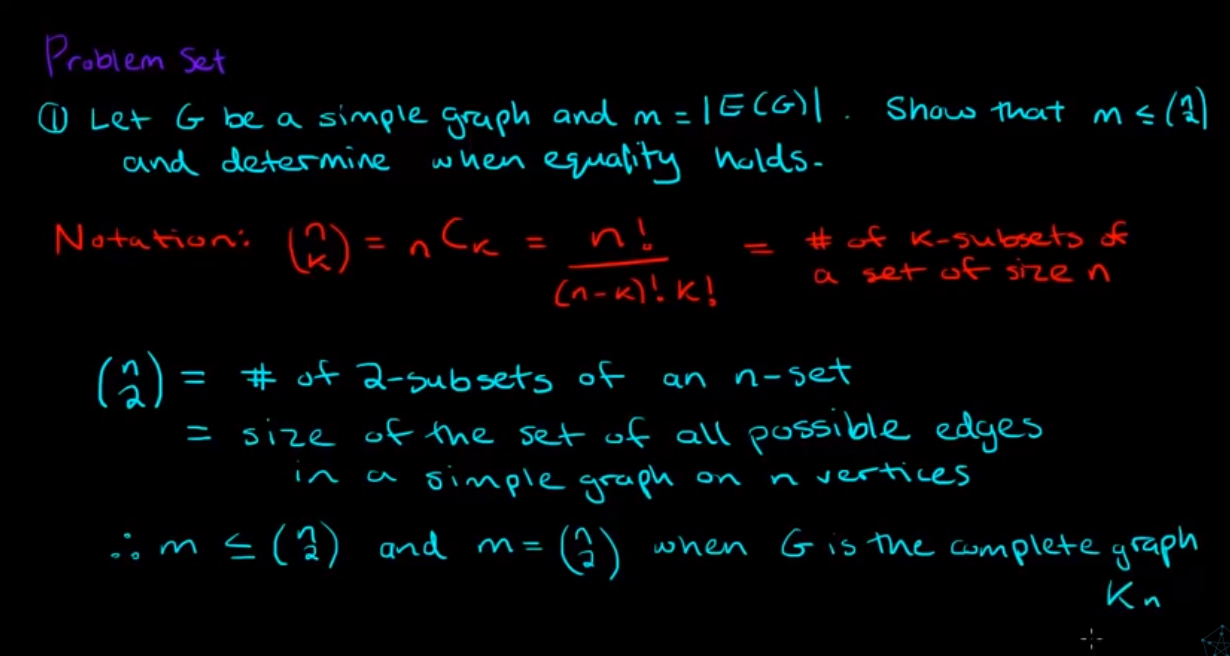 Problem Set
① Let G be a simple graph and m = |E(G)|. Show that m ≤ (n 2)
and determine when equality holds.
Notation: (n k) = nCk = n! / (n-k)! k! = # of k-subsets of
a set of size n
(n 2) = # of 2-subsets of an n-set
= size of the set of all possible edges
in a simple graph on n vertices
∴ m ≤ (n 2) and m = (n 2) when G is the complete graph
Kn